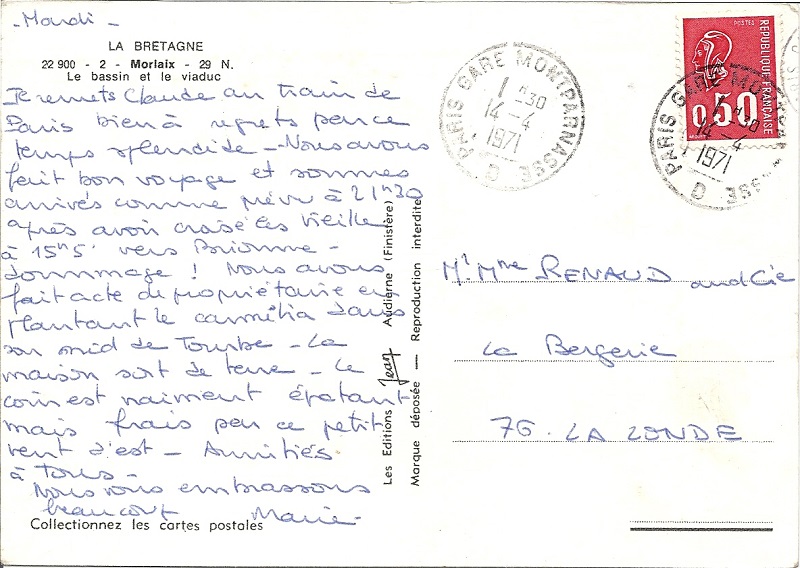 - Mardi -
LA BRETAGNE
22 900 - 2 - Morlaix - 29 N.
Le bassin et le viaduc
Je remets Claude au train de
Paris bien à regrets par ce
temps splendide - Nous avons
fait bon voyage et sommes
arrivés comme prévu à 21h30
après avoir croisé les Vieille
à 15h5' vers Brionne -
dommage ! Nous avons
fait acte de propriétaire en
plantant le camélia dans
son nid de Tourbe - La
maison sort de terre - Le
coin est vraiment épatant
mais frais par ce petit
vent d'est - Amitiés
à Tous -
Nous vous embrassons
beaucoup Marie -
Collectionnez les cartes postales
Les Editions Jean Audierne (Finistère)
Marque déposée — Reproduction interdite
PARIS GARE MONTPARNASSE
1 H30
14-4
1971
POSTES
REPUBLIQUE FRANÇAISE
0,50
PARIS GARE MONTPARNASSE
14-4
1971
Mr Mme RENAUD and Cie
La Bergerie
76. LA LONDE